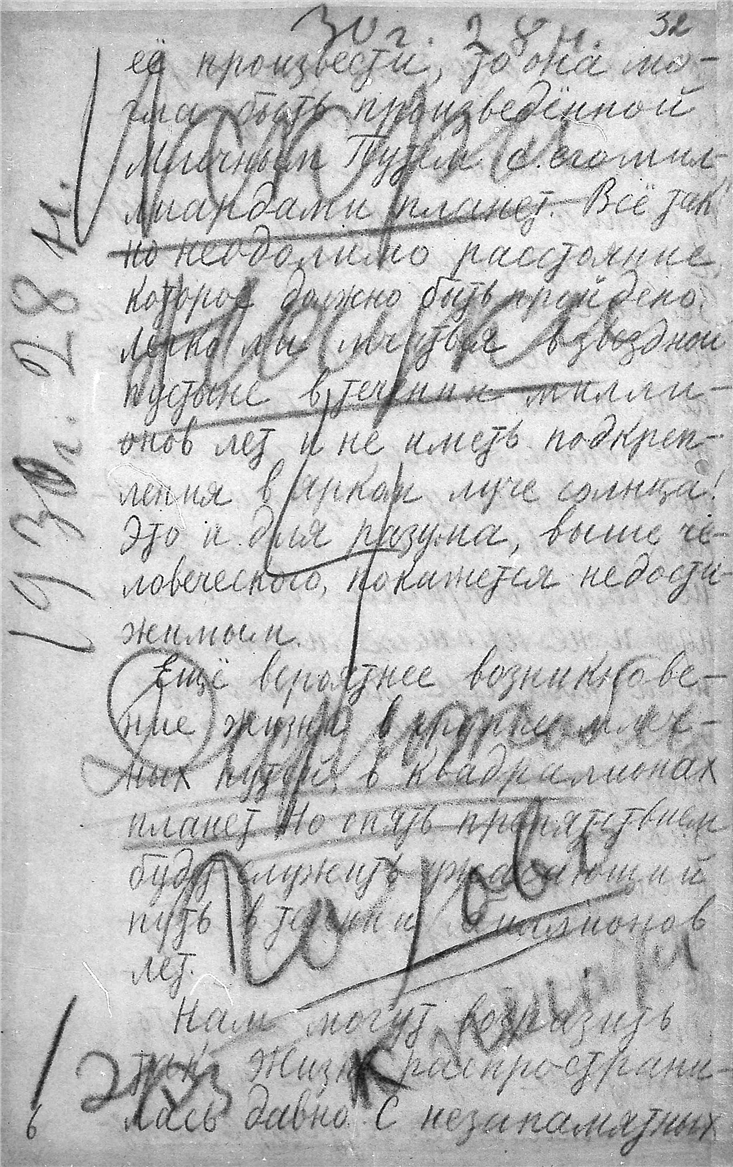 30 г. 28 н. 32
её произвести, то она мо-
гла быть произведённой
Млечным Путём с его мил-
лиардами планет. Всё так
но неодолимо расстояние,
которое должно быть пройдено.
Легко ли мчаться в звездной
пустыне в течении милли-
онов лет и не иметь подкреп-
ления в ярком луче солнца!
Это и для разума, выше че-
ловеческого, покажется недости-
жимым.
Ещё вероятнее возникнове-
ние жизни в группе млеч-
ных путей, в квадрильонах
планет. Но опять препятствием
будет служить ужасающий
путь в течении миллионов
лет.
Нам могут возразить
так. Жизнь распространи-
лась давно. С незапамятных
6
1930 г. 28 н.